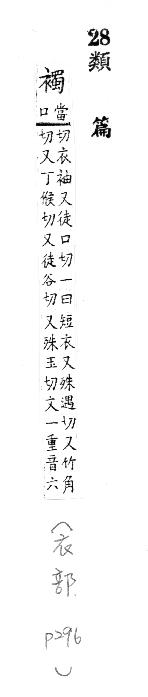 28
類篇
襡
當
口
切衣袖又徒口切一曰短衣又殊遇切又竹角
切又丁候切又徒谷切又殊玉切文一重音六
(衣部 p296)